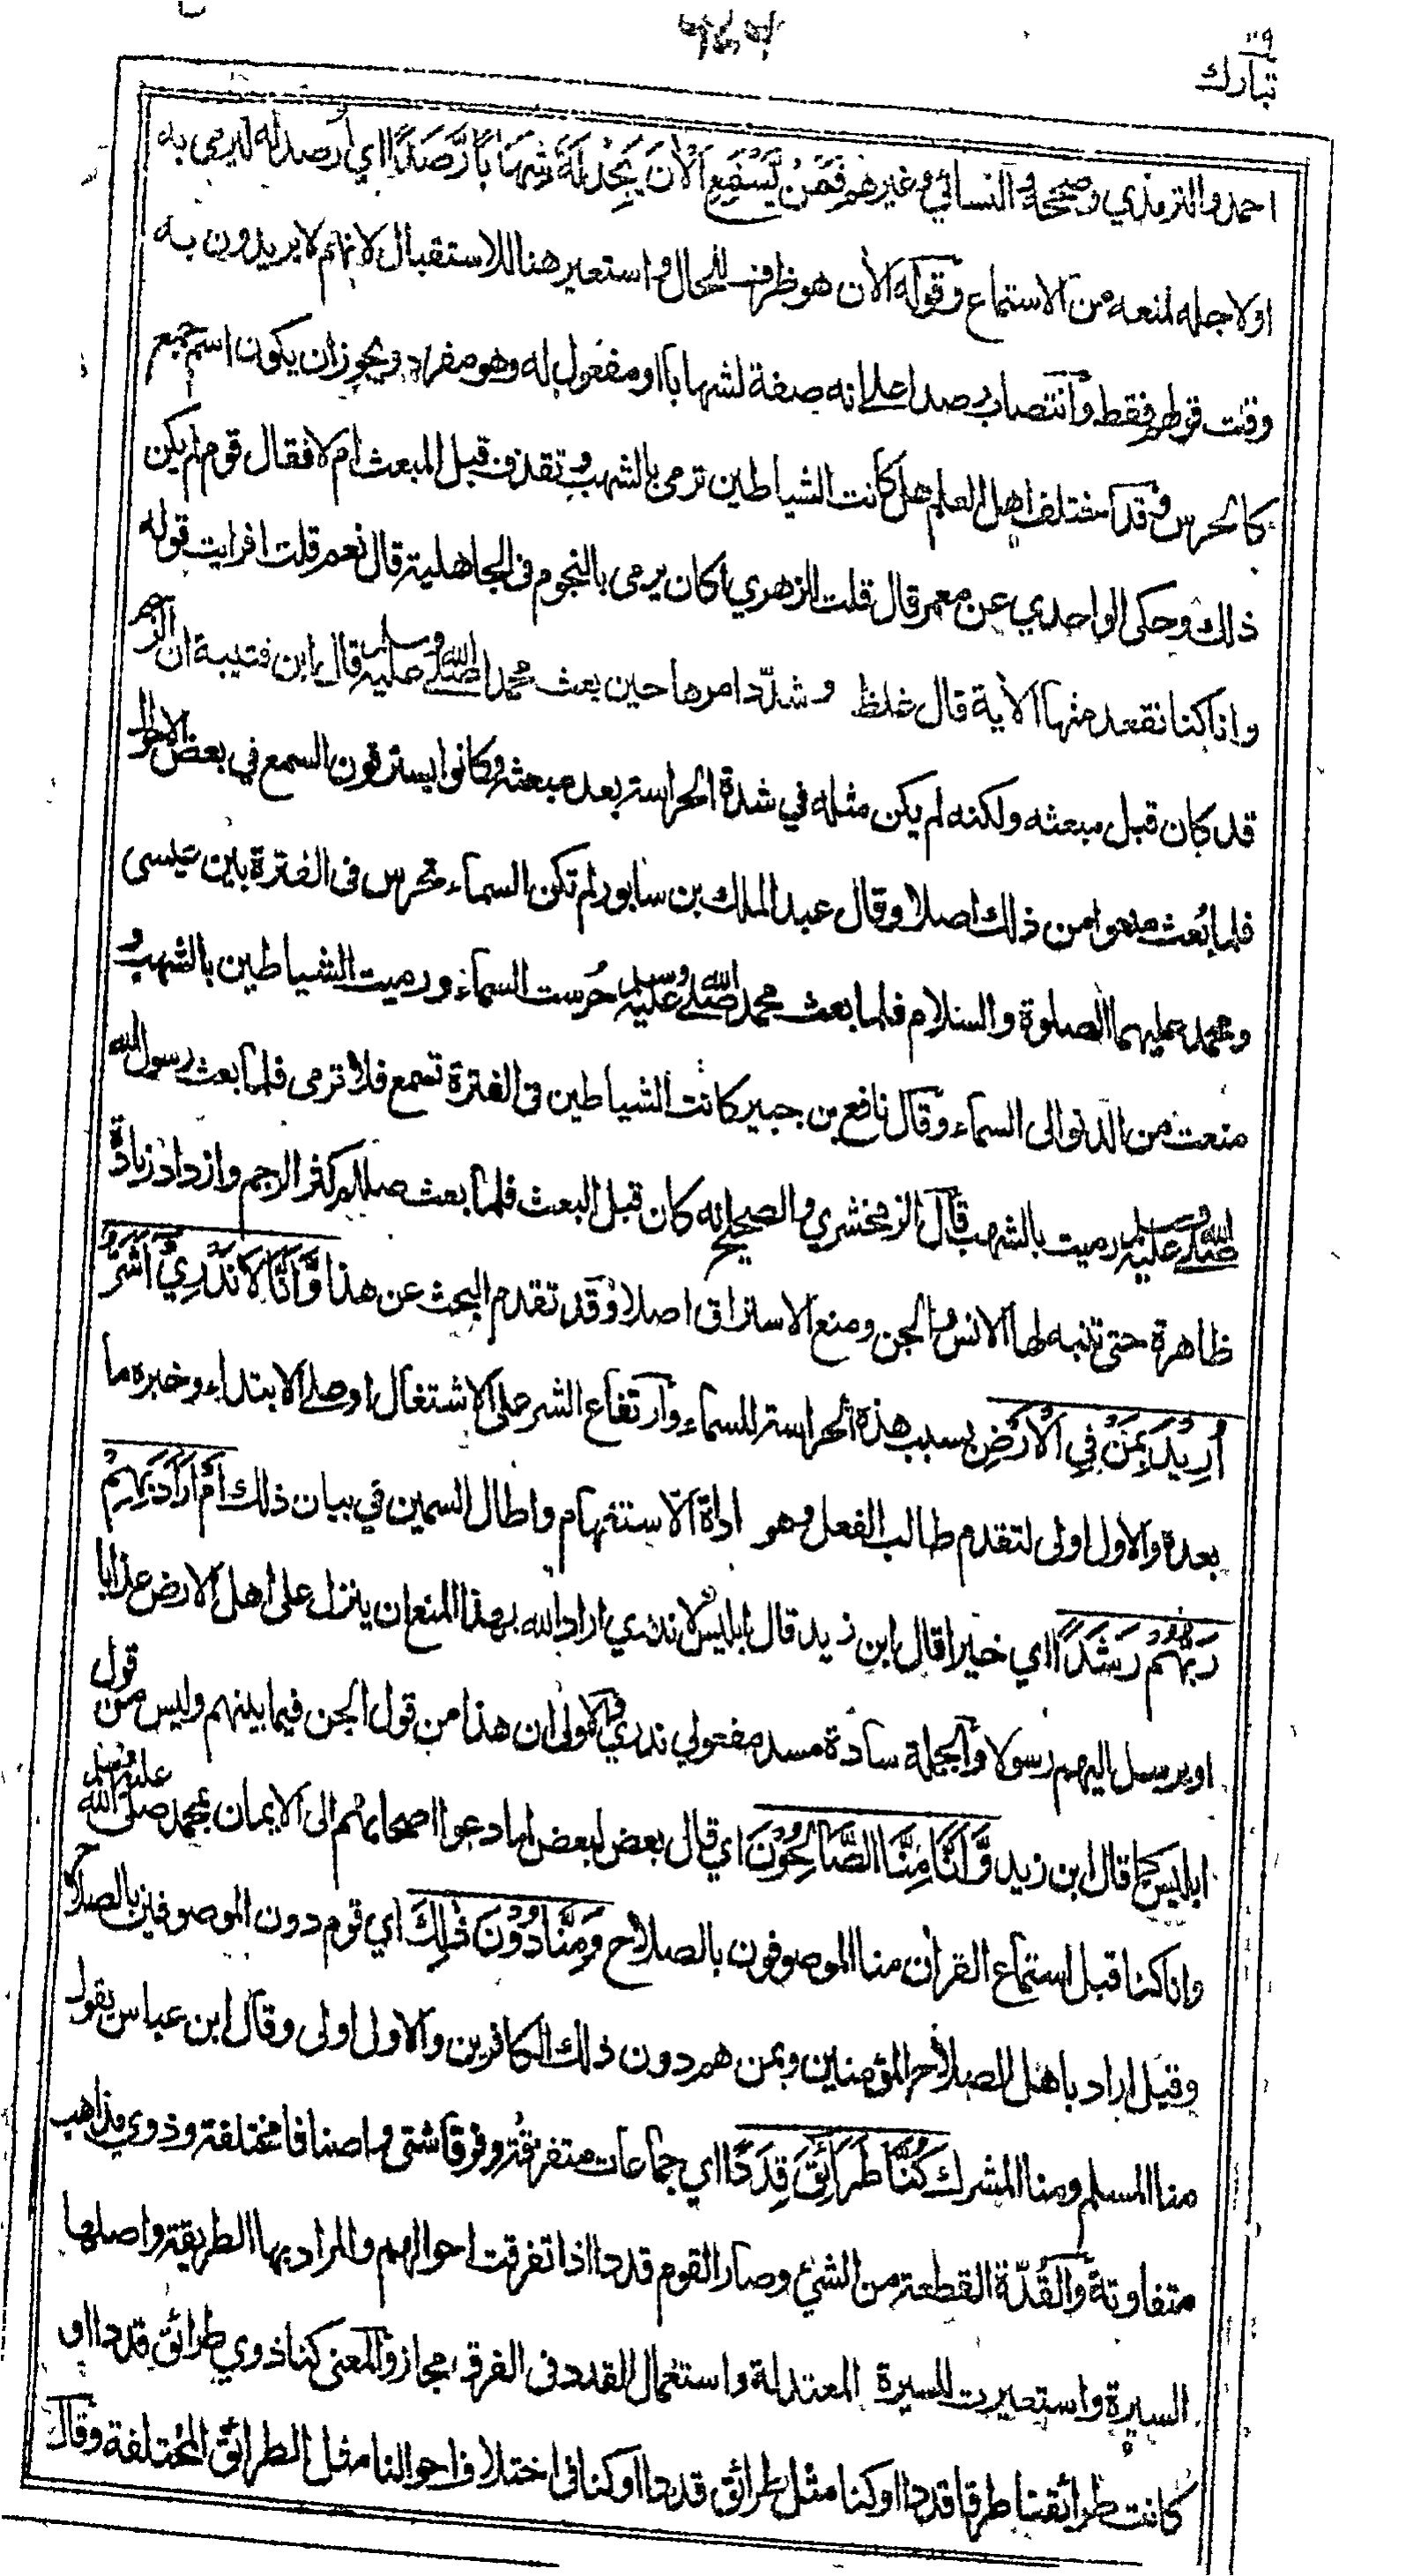 تبارك ٢٩
احمد والترمذي وصححه والنسائي وغيرهم فَمَنْ يَّسْتَمِعِ الْاٰنَ يَجِدْ لَهٗ شِهَابًا رَّصَدًا اي ارصد له ليرمى به
اولاجله لمنعه من الاستماع وقوله الاٰن هو ظرف للحال واستعير هنا للاستقبال لانهم لا يريدون به
وقت قولهم فقط وانتصاب رصدا على انه صفة لشهابا او مفعول له وهو مفرد ويجوز ان يكون اسم جمع
كالحرس وقد اختلف اهل العلم هل كانت الشياطين ترمى بالشهب وتقذف قبل المبعث ام لا فقال قوم لم يكن
ذلك وحكى الواحدي عن معمر قال قلت للزهري اكان يرمى بالنجوم فى الجاهلية قال نعم قلت افرايت قوله
وانا كنا نقعد منها الاٰية قال غلظ وشدّد امرها حين بعث محمد صلى الله عليه وسلم قال ابن قتيبة ان الرجم
قد كان قبل مبعثه ولكنه لم يكن مثله في شدة الحراسة بعد مبعثه وكانوا يسترقون السمع في بعض الاحوال
فلما بُعث منعوا من ذلك اصلا وقال عبد الملك بن سابور لم تكن السماء تحرس فى الفترة بين عيسى
ومحمد عليهما الصلوة والسلام فلما بعث محمد صلى الله عليه وسلم حُرست السماء ورميت الشياطين بالشهب و
منعت من الدنو الى السماء وقال نافع بن جبير كانت الشياطين فى الفترة تسمع فلا ترمى فلما بعث رسول الله
صلى الله عليه وسلم رميت بالشهب قال الزمخشري والصحيح انه كان قبل البعث فلما بعث صللم كثر الرجم وازداد زيادة
ظاهرة حتى تنبه لها الانس والجن ومنع الاستراق اصلا وقد تقدم البحث عن هذا وَّاَنَّا لَا نَدْرِيْٓ اَشَرٌّ
اُرِيْدَ بِمَنْ فِي الْاَرْضِ بسبب هذه الحراسة للسماء وارتفاع الشر على الاشتغال او على الابتداء وخبره ما
بعده والاول اولى لتقدم طالب الفعل وهو اداة الاستفهام واطال السمين في بيان ذلك اَمْ اَرَادَ بِهِمْ
رَبُّهُمْ رَشَدًا اي خيرا قال ابن زيد قال ابليس لا ندري اراد الله بهذا المنع ان ينزل على اهل الارض عذابا
او يرسل اليهم رسولا والجملة سادة مسد مفعولي ندري والاولى ان هذا من قول الجن فيما بينهم وليس من قول
ابليس كما قال ابن زيد وَّاَنَّا مِنَّا الصَّالِحُوْنَ اي قال بعض لبعض لما دعوا اصحابهم الى الايمان بمحمد صلى الله عليه وسلم
وانا كنا قبل استماع القراٰن منا الموصوفون بالصلاح وَمِنَّا دُوْنَ ذٰلِكَ اي قوم دون الموصوفين بالصلاح
وقيل اراد باهل الصلاح المؤمنين وبمن هم دون ذلك الكافرين والاول اولى وقال ابن عباس يقول
منا المسلم ومنا المشرك كُنَّا طَرَآئِقَ قِدَدًا اي جماعات متفرقة وفرقا شتى واصنافا مختلفة وذوي مذاهب
متفاوتة والقُدّة القطعة من الشئ وصار القوم قددا اذا تفرقت احوالهم والمراد بها الطريقة واصلها
السيرة واستعيرت للسيرة المعتدلة واستعمال القدد فى الفرق مجاز والمعنى كنا ذوي طرائق قددا او
كانت طرائقنا طرقا قددا او كنا مثل طرائق قددا او كنا فى اختلاف احوالنا مثل الطرائق المختلفة وقال